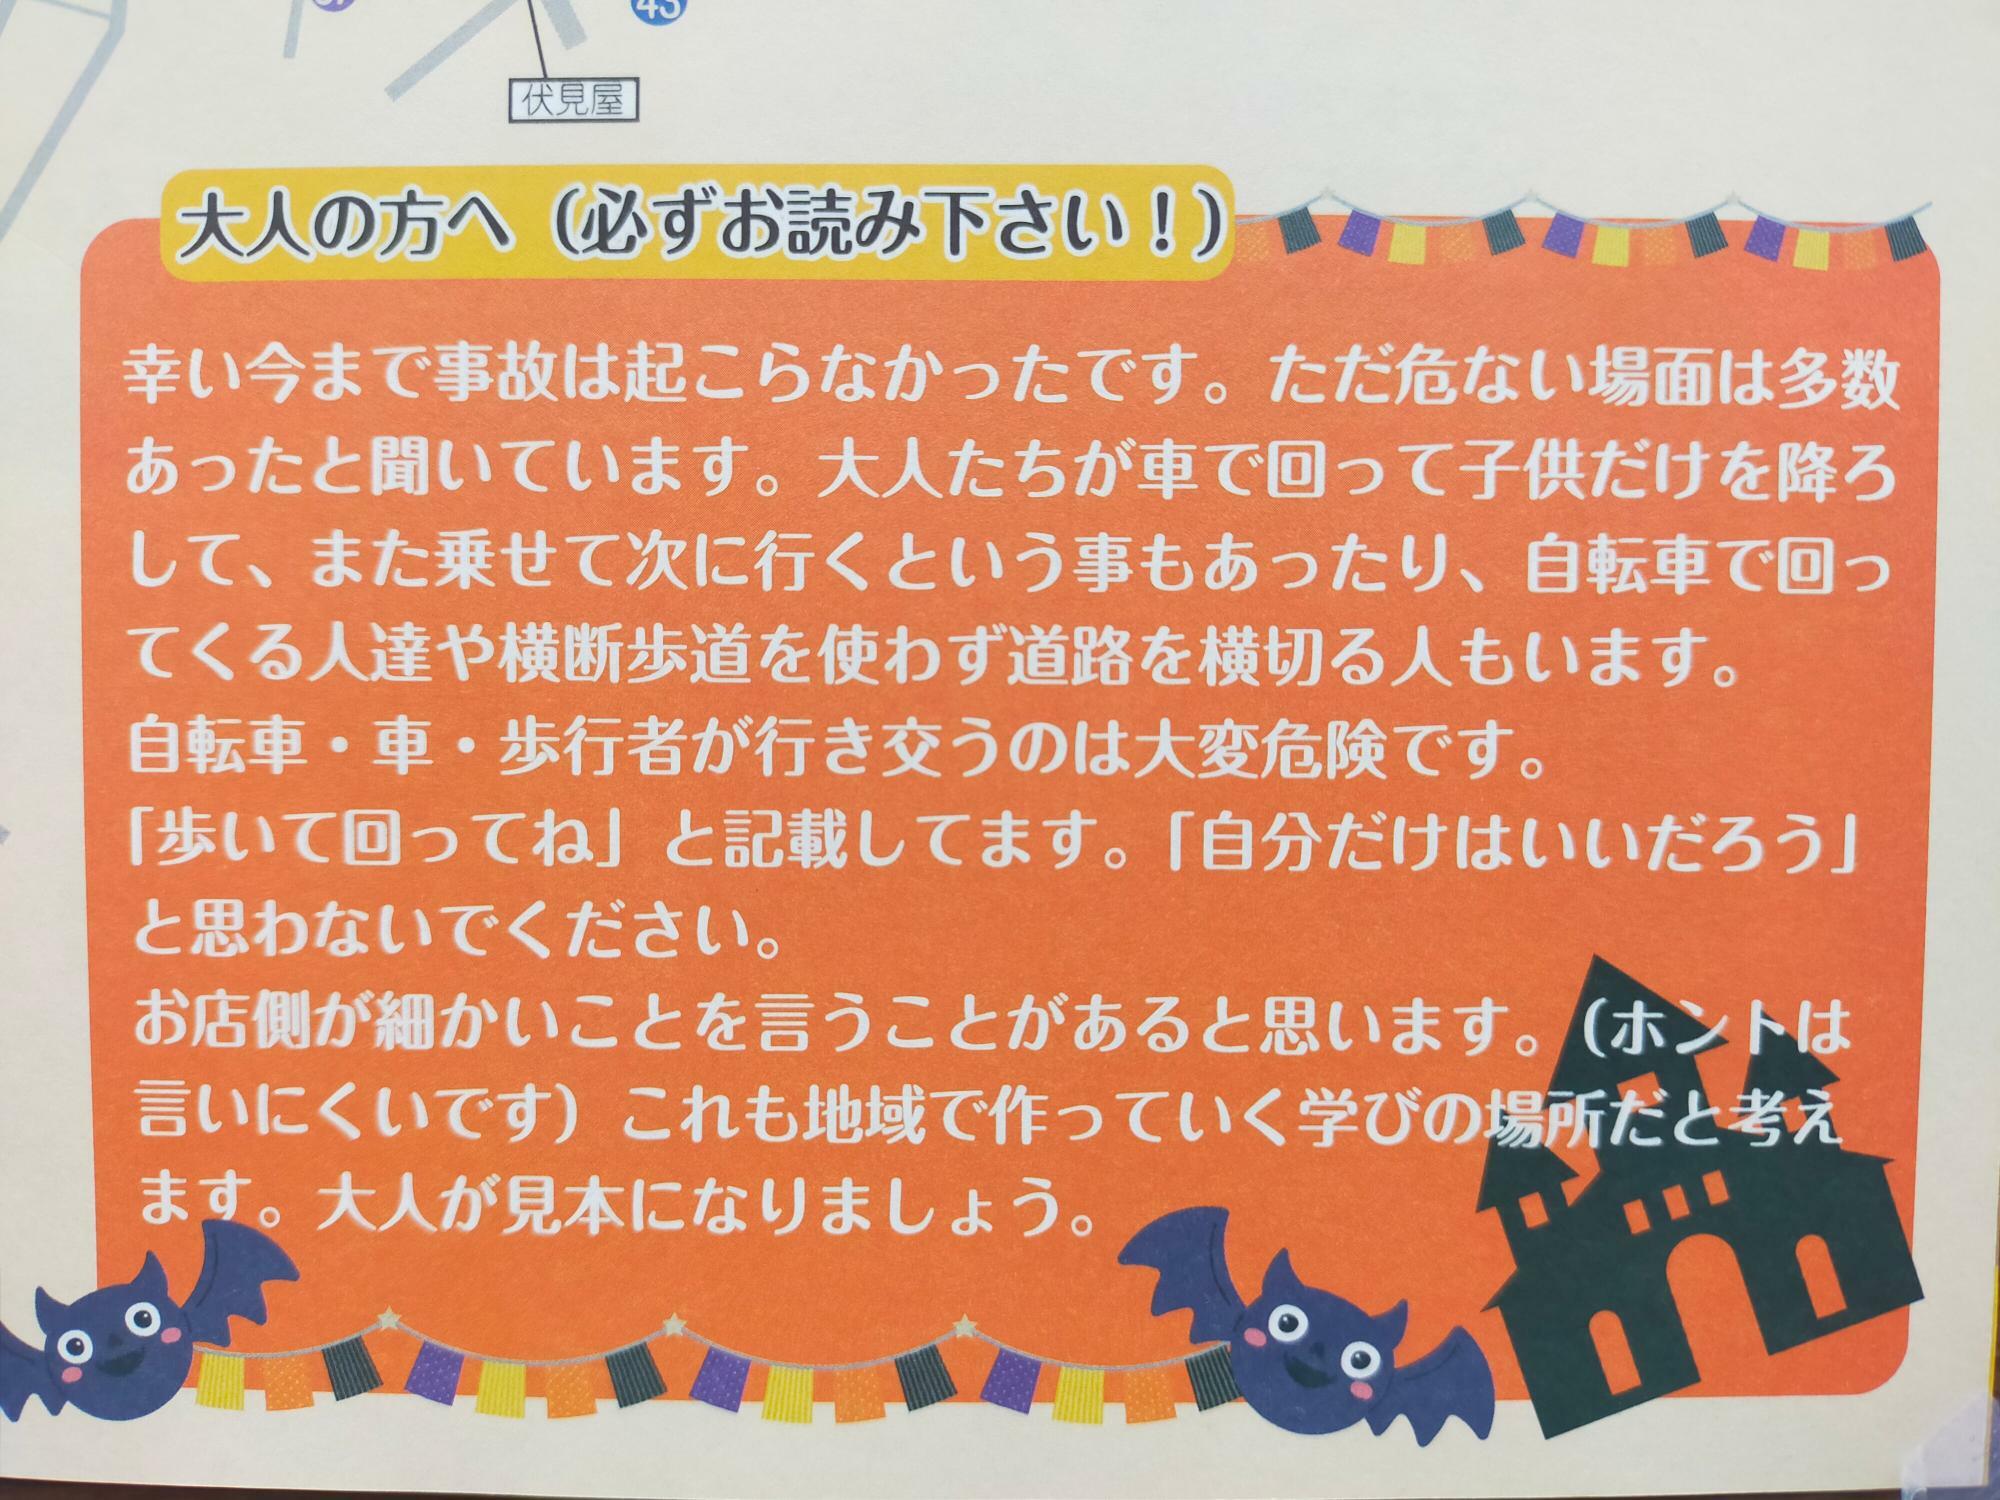 43
伏見屋
大人の方へ（必ずお読み下さい！）
幸い今まで事故は起こらなかったです。ただ危ない場面は多数
あったと聞いています。大人たちが車で回って子供だけを降ろ
して、また乗せて次に行くという事もあったり、自転車で回っ
てくる人達や横断歩道を使わず道路を横切る人もいます。
自転車・車・歩行者が行き交うのは大変危険です。
「歩いて回ってね」と記載してます。「自分だけはいいだろう」
と思わないでください。
お店側が細かいことを言うことがあると思います。（ホントは
言いにくいです）これも地域で作っていく学びの場所だと考え
ます。大人が見本になりましょう。